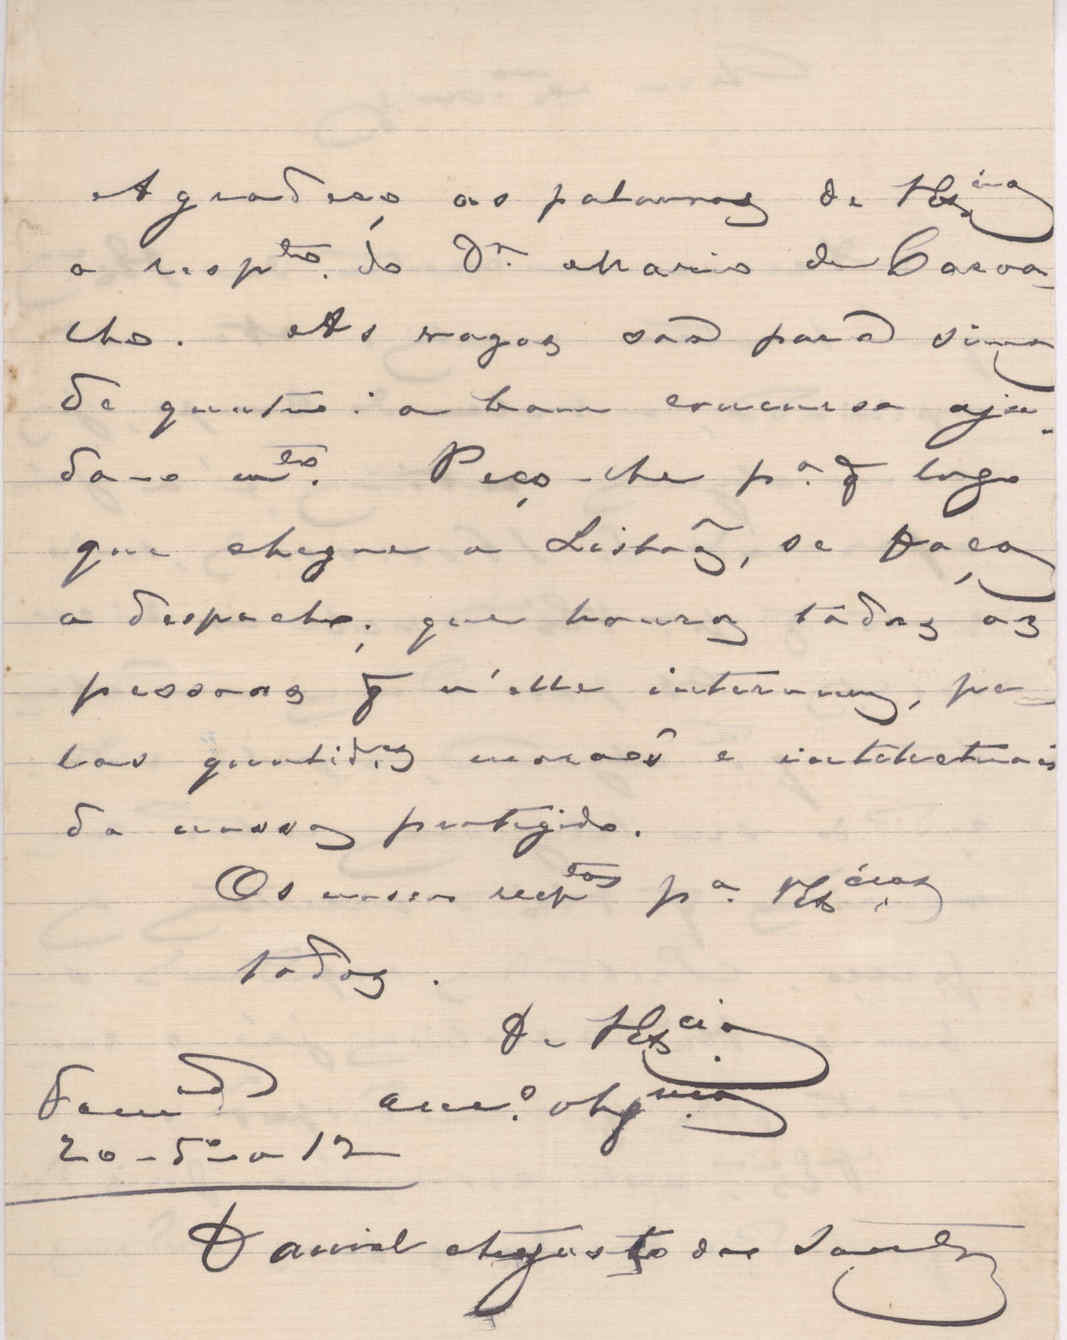 Agradeço as palavras de V. Ex.cia
a resp.to do Dr. Mario de Carva-
lho. As vagas são para cima
de quatro: o bom concurso aju-
da-o m.to. Peço-lhe p.a q logo
que chegue a Lisboa, se faça
o despacho, que honra todas as
pessoas q n'elle intervem, pe-
las qualid.es moraes e intelectuais
do nosso protegido.
Os nossos resp.tos p.a V. Ex.cias
todos.
De V. Ex.cia
am.o obg.mo
20-5-12
Daniel Augusto dos Santos